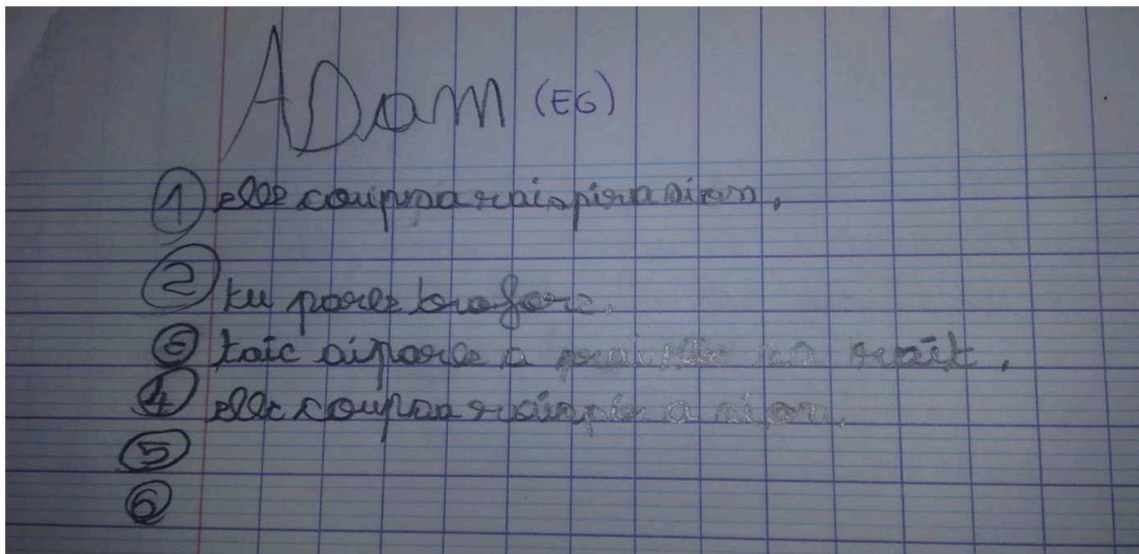 ADam (EG)
① elle coupsa raispirasion.
② tu parle tro fore.
③ taic aiparle a
④ elle coupsa raispir a sion.
⑤
⑥